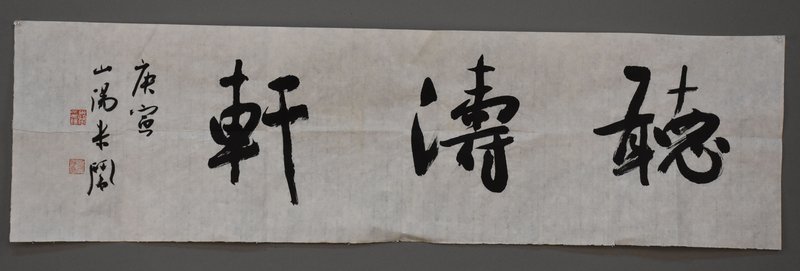 聽濤軒
庚寅
山陽米鬧